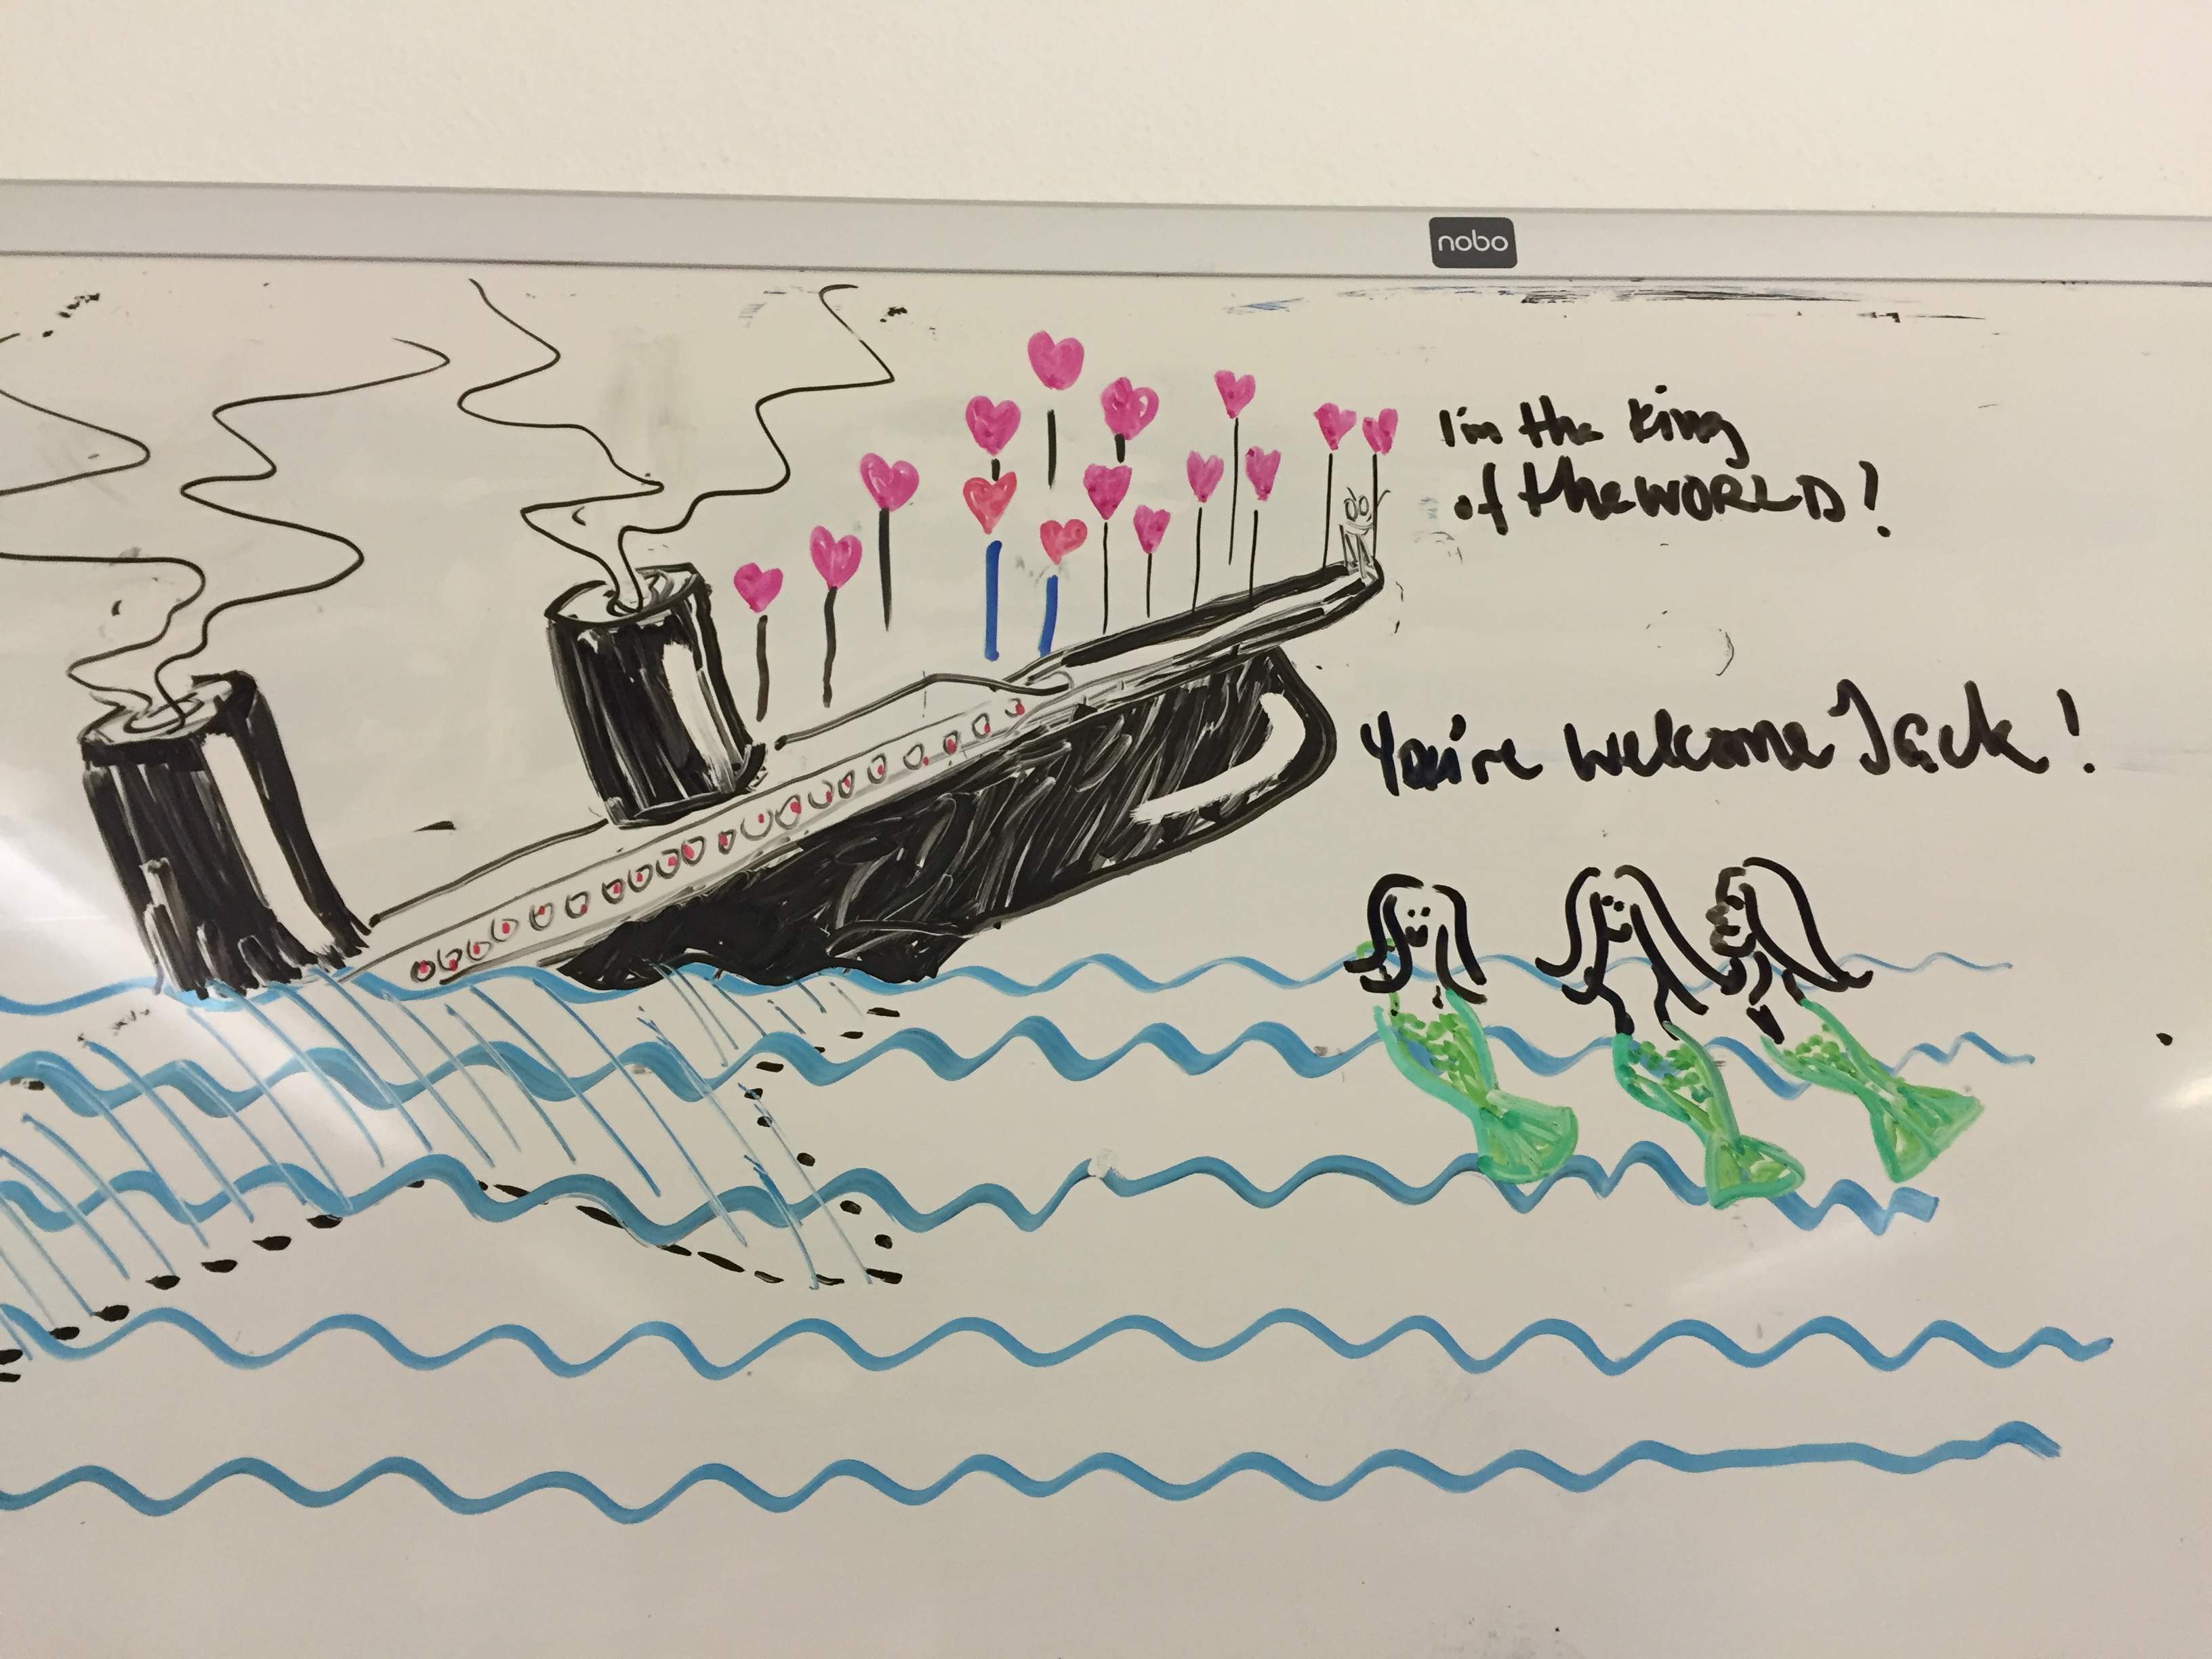 nobo
I'm the King
of the WORLD!
You're welcome Jack!